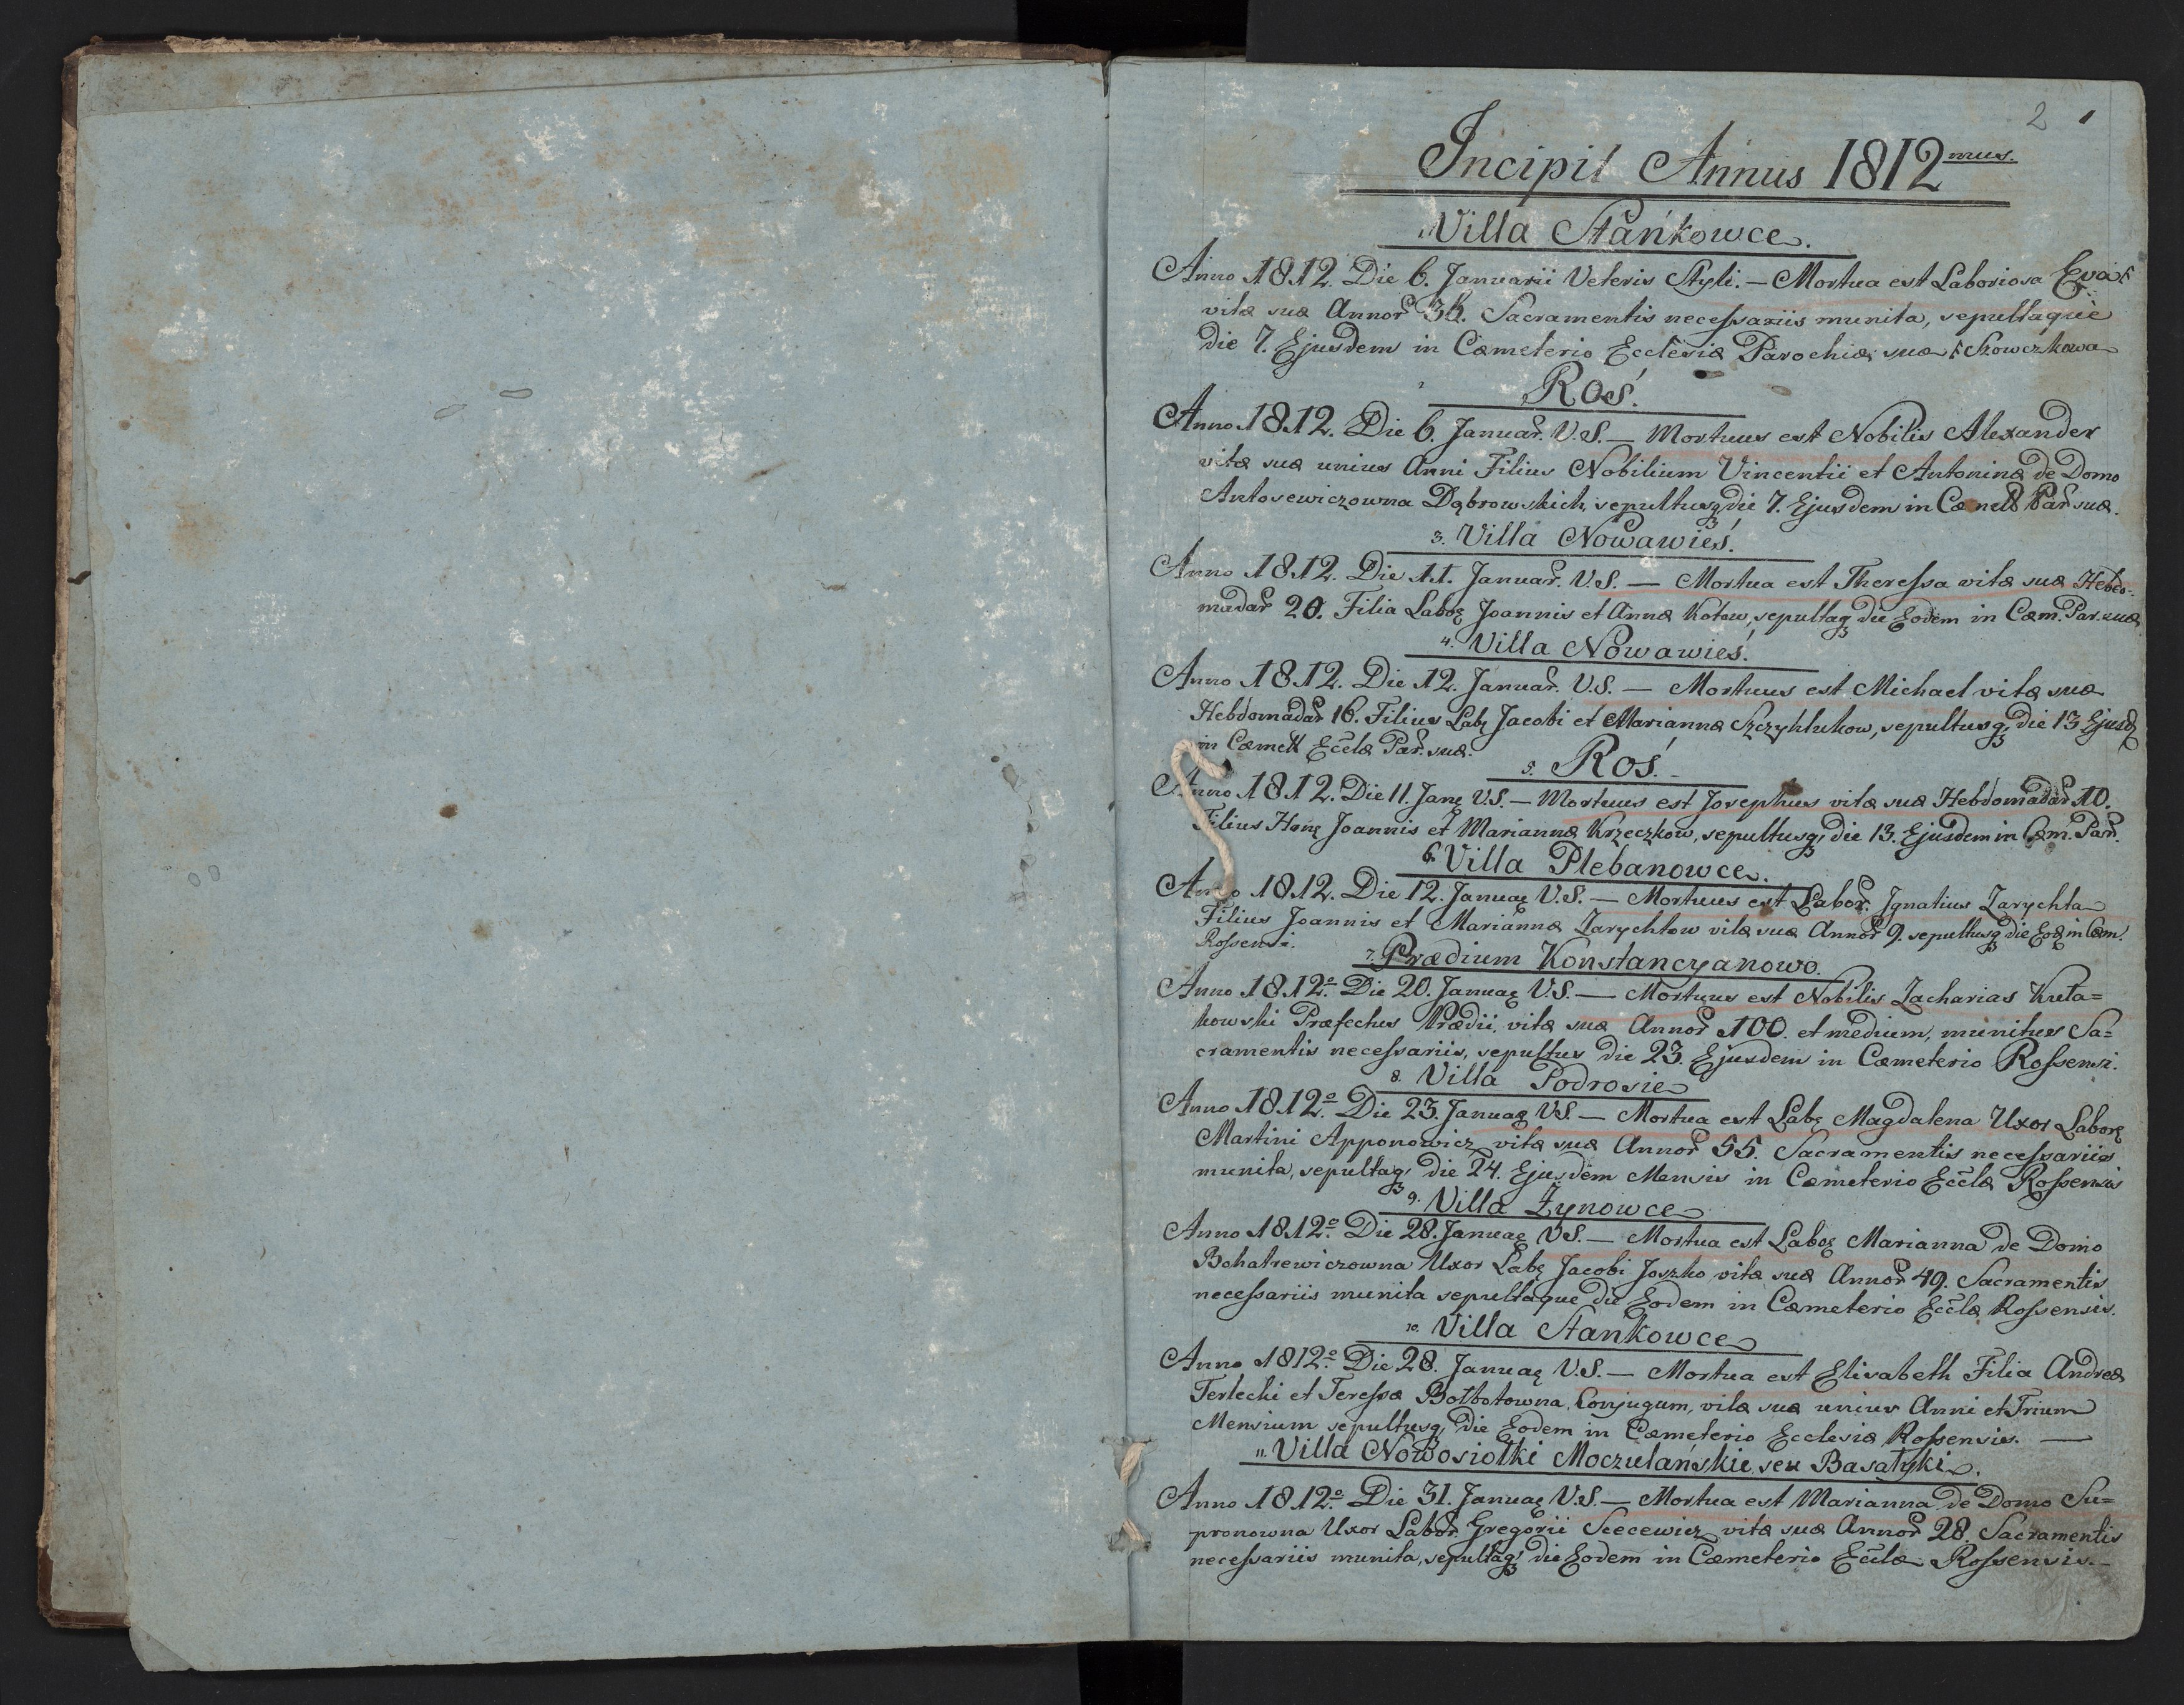 2 1
Incipit Annus 1812mus.
1. Villa Stańkowce.
Anno 1812. Die 6. Januarii Veteris Styli. — Mortua est Laboriosa Eva
vitæ suæ Annor 36. Sacramentis necessariis munita, sepultaque
die 7. Ejusdem in Cæmeterio Ecclesiæ Parochiæ suæ Szowczkowa
2 Roś.
Anno 1812. Die 6. Januar. V.S. — Mortuus est Nobilis Alexander
vitæ suæ unius Anni Filius Nobilium Vincentii et Antoninæ de Domo
Antosewiczowna Dąbrowskich, sepultusq3 die 7. Ejusdem in Cæmett Par suæ.
3. Villa Nowawieś.
Anno 1812. Die 11. Januar. V.S. — Mortua est Theressa vitæ suæ Hebdo-
madar 20. Filia Labor Joannis et Annæ Kotow, sepultaq3 die Eodem in Cæm. Par. suæ
4. Villa Nowawieś.
Anno 1812. Die 12. Januar. V.S. — Mortuus est Michael vitæ suæ
Hebdomadar 16. Filius Lab Jacobi et Mariannæ Szczyhlukow, sepultusq3 die 13 Ejusd
in Cæmett Eccłæ Par. suæ.
5. Roś.
Anno 1812. Die 11. Jan V.S. — Mortuus est Josephus vitæ suæ Hebdomadar 10.
Filius Hon Joannis et Mariannæ Krzeczkow, sepultusq3 die 13. Ejusdem in Cæm. Par.
6. Villa Plebanowce.
Anno 1812. Die 12. Januar V.S. — Mortuus est Labor. Ignatius Zarychta
Filius Joannis et Mariannæ Zarychtow vitæ suæ Annor 9. sepultusq3 die Eod in Cæm.
Rossensi.
7. Prædium Konstancyanowo.
Anno 1812o. Die 20. Januar V.S. — Mortuus est Nobilis Zacharias Kreta=
kowski Præfectus Prædii, vitæ suæ Annor 100. et medium, munitus Sa=
cramentis necessariis, sepultus die 23. Ejusdem in Cæmeterio Rossensi.
8. Villa Podrosie
Anno 1812o. Die 23. Januar V.S. — Mortua est Lab Magdalena Uxor Labor
Martini Apponowicz vitæ suæ Annor 55. Sacramentis necessariis
munita, sepultaq3 die 24. Ejusdem Mensis in Cæmeterio Eccłæ Rossensis
9. Villa Żynowce
Anno 1812o. Die 28. Januar V.S. — Mortua est Labor Marianna de Domo
Bohatrewiczowna Uxor Lab Jacobi Joszko vitæ suæ Annor 49. Sacramentis
necessariis munita sepultaque die Eodem in Cæmeterio Eccłæ Rossensis.
10. Villa Stańkowce
Anno 1812o. Die 28. Januar V.S. — Mortua est Elisabeth Filia Andreæ
Terlecki et Teressæ Bołbotowna, Conjugum, vitæ suæ unius Anni et Trium
Mensium sepultusq3 die Eodem in Cæmeterio Ecclesiæ Rossensis. —
11. Villa Nowosiołki Moczulańskie seu Basałyki.
Anno 1812o. Die 31. Januar V.S. — Mortua est Marianna de Domo Su=
pronowna Uxor Labor. Gregorii Scecewicz vitæ suæ Annor 28 Sacramentis
necessariis munita, sepultaq3 die Eodem in Cæmeterio Eccłæ Rossensis. —